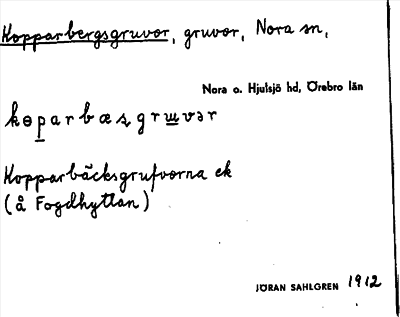 Kopparbergsgruvor, gruvor, Nora sn,
Nora o. Hjulsjö hd, Örebro län
Kopparbäcksgrufvorna ek
(å Fogdhyttan)
JÖRAN SAHLGREN 1912